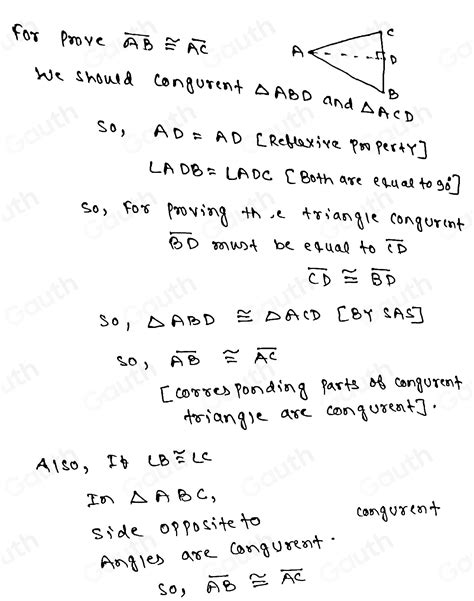 For prove AB ≅ AC
C
A
D
B
We should congurent △ABD and △ACD
So, AD = AD [Reflexive property]
∠ADB = ∠ADC [Both are equal to 90°]
So, for proving the triangle congurent
BD must be equal to CD
CD ≅ BD
So, △ABD ≅ △ACD [BY SAS]
So, AB ≅ AC
[corresponding parts of congurent
triangle are congurent].
Also, If ∠B ≅ ∠C
In △ABC,
side opposite to congurent
Angles are congurent.
So, AB ≅ AC
Gauth